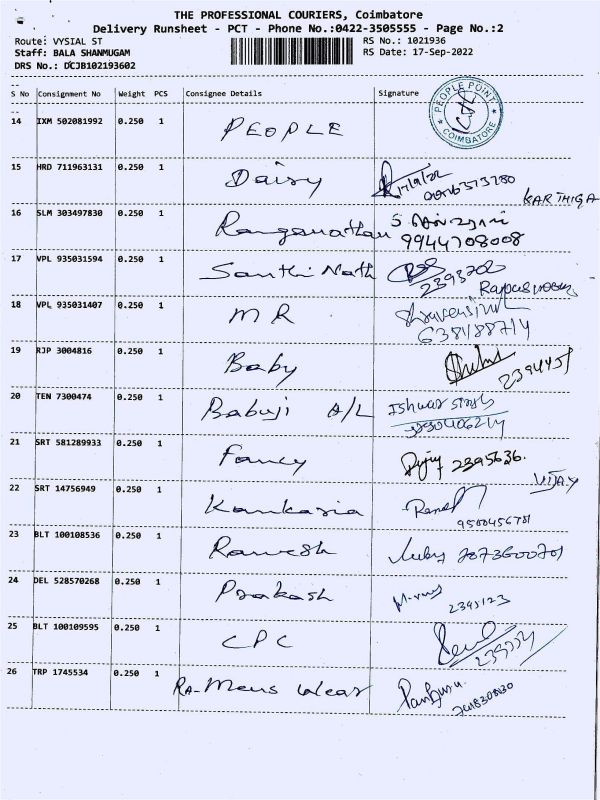 THE PROFESSIONAL COURIERS, Coimbatore
Delivery Runsheet - PCT - Phone No.:0422-3505555 - Page No.:2
Route: VYSIAL ST RS No.: 1021936
Staff: BALA SHANMUGAM RS Date: 17-Sep-2022
DRS No.: DCJB102193602
S No Consignment No Weight PCS Consignee Details Signature
PEOPLE POINT
COIMBATORE
14 IXM 502081992 0.250 1 PEOPLE
15 HRD 711963131 0.250 1 Daisy 17/9/22
KARTHIGA
16 SLM 303497830 0.250 1 Ranganathan S
9944708008
17 VPL 935031594 0.250 1 Santhi Nath
2393702
18 VPL 935031407 0.250 1 MR
19 RJP 3004816 0.250 1 Baby
20 TEN 7300474 0.250 1 Babuji A/L Ishwar Singh
21 SRT 581289933 0.250 1 Fancy 2395636
VIJAY
22 SRT 14756949 0.250 1 Kankaria
9500456781
23 BLT 100108536 0.250 1 Ramesh
24 DEL 528570268 0.250 1 Prakash 2395123
25 BLT 100109595 0.250 1 CPC
26 TRP 1745534 0.250 1 RA-Mens Wear